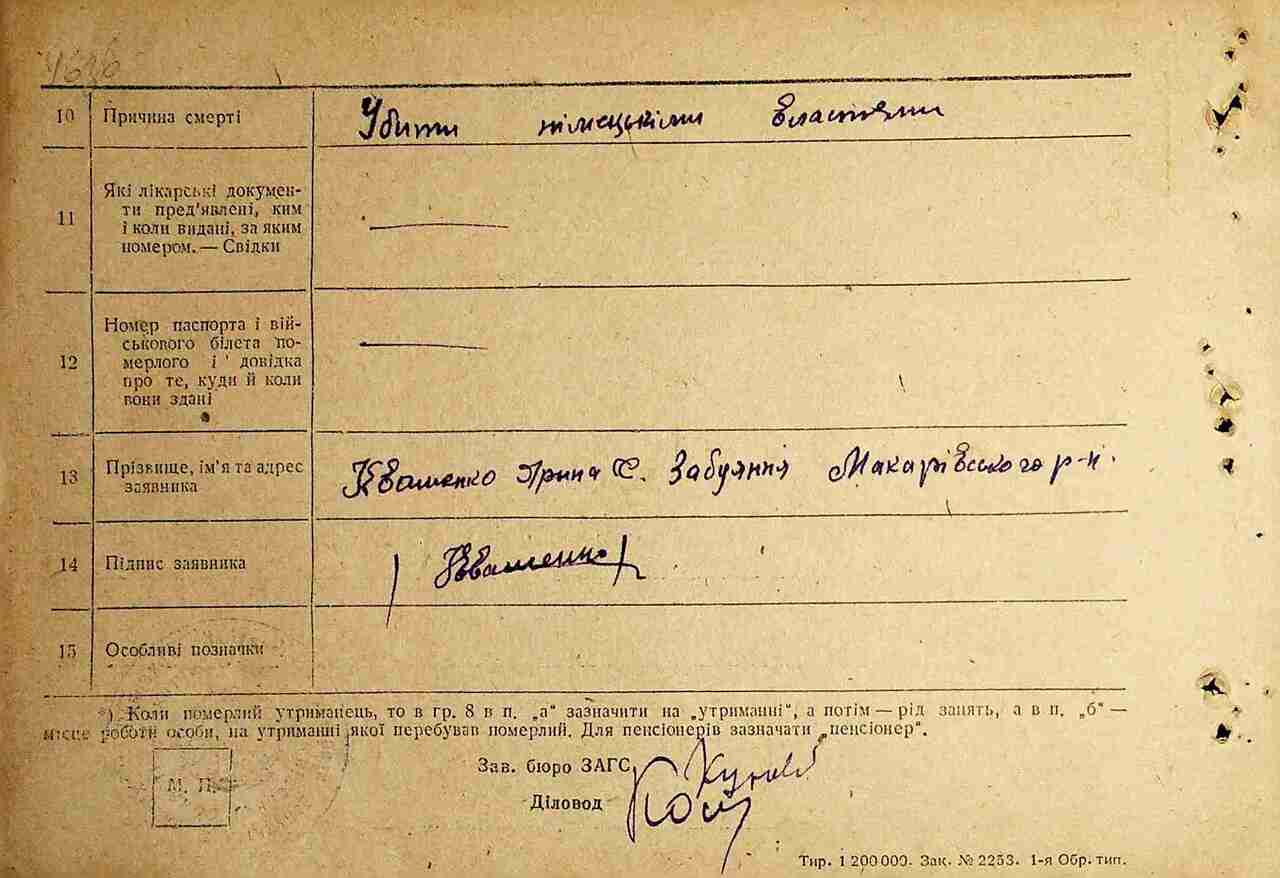 1636
10 Причина смерті Убити німецькіми властями
11 Які лікарські докумен-
ти пред'явлені, ким
і коли видані, за яким
номером. — Свідки
12 Номер паспорта і вій-
ськового білета по-
мерлого і довідка
про те, куди й коли
вони здані
13 Прізвище, ім'я та адрес
заявника
Квашенко Ірина С. Забуяння Макарівського р-н.
14 Підпис заявника Квашенко
15 Особливі позначки
*) Коли померлий утриманець, то в гр. 8 в п. „а“ зазначити на „утриманні“, а потім — рід занять, а в п. „б“ —
місце роботи особи, на утриманні якої перебував померлий. Для пенсіонерів зазначати „пенсіонер“.
М. П.
Зав. бюро ЗАГС
Діловод
Тир. 1 200 000. Зак. № 2253. 1-я Обр. тип.